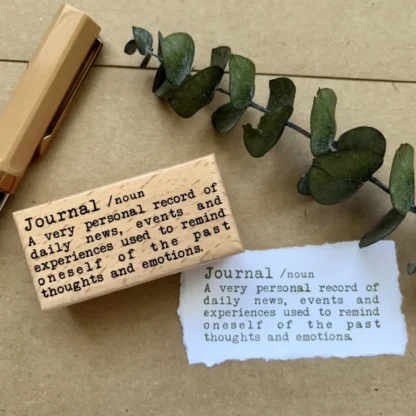 Journal /noun
A very personal record of
daily news, events and
experiences used to remind
oneself of the past
thoughts and emotions.
Journal /noun
A very personal record of
daily news, events and
experiences used to remind
oneself of the past
thoughts and emotions.